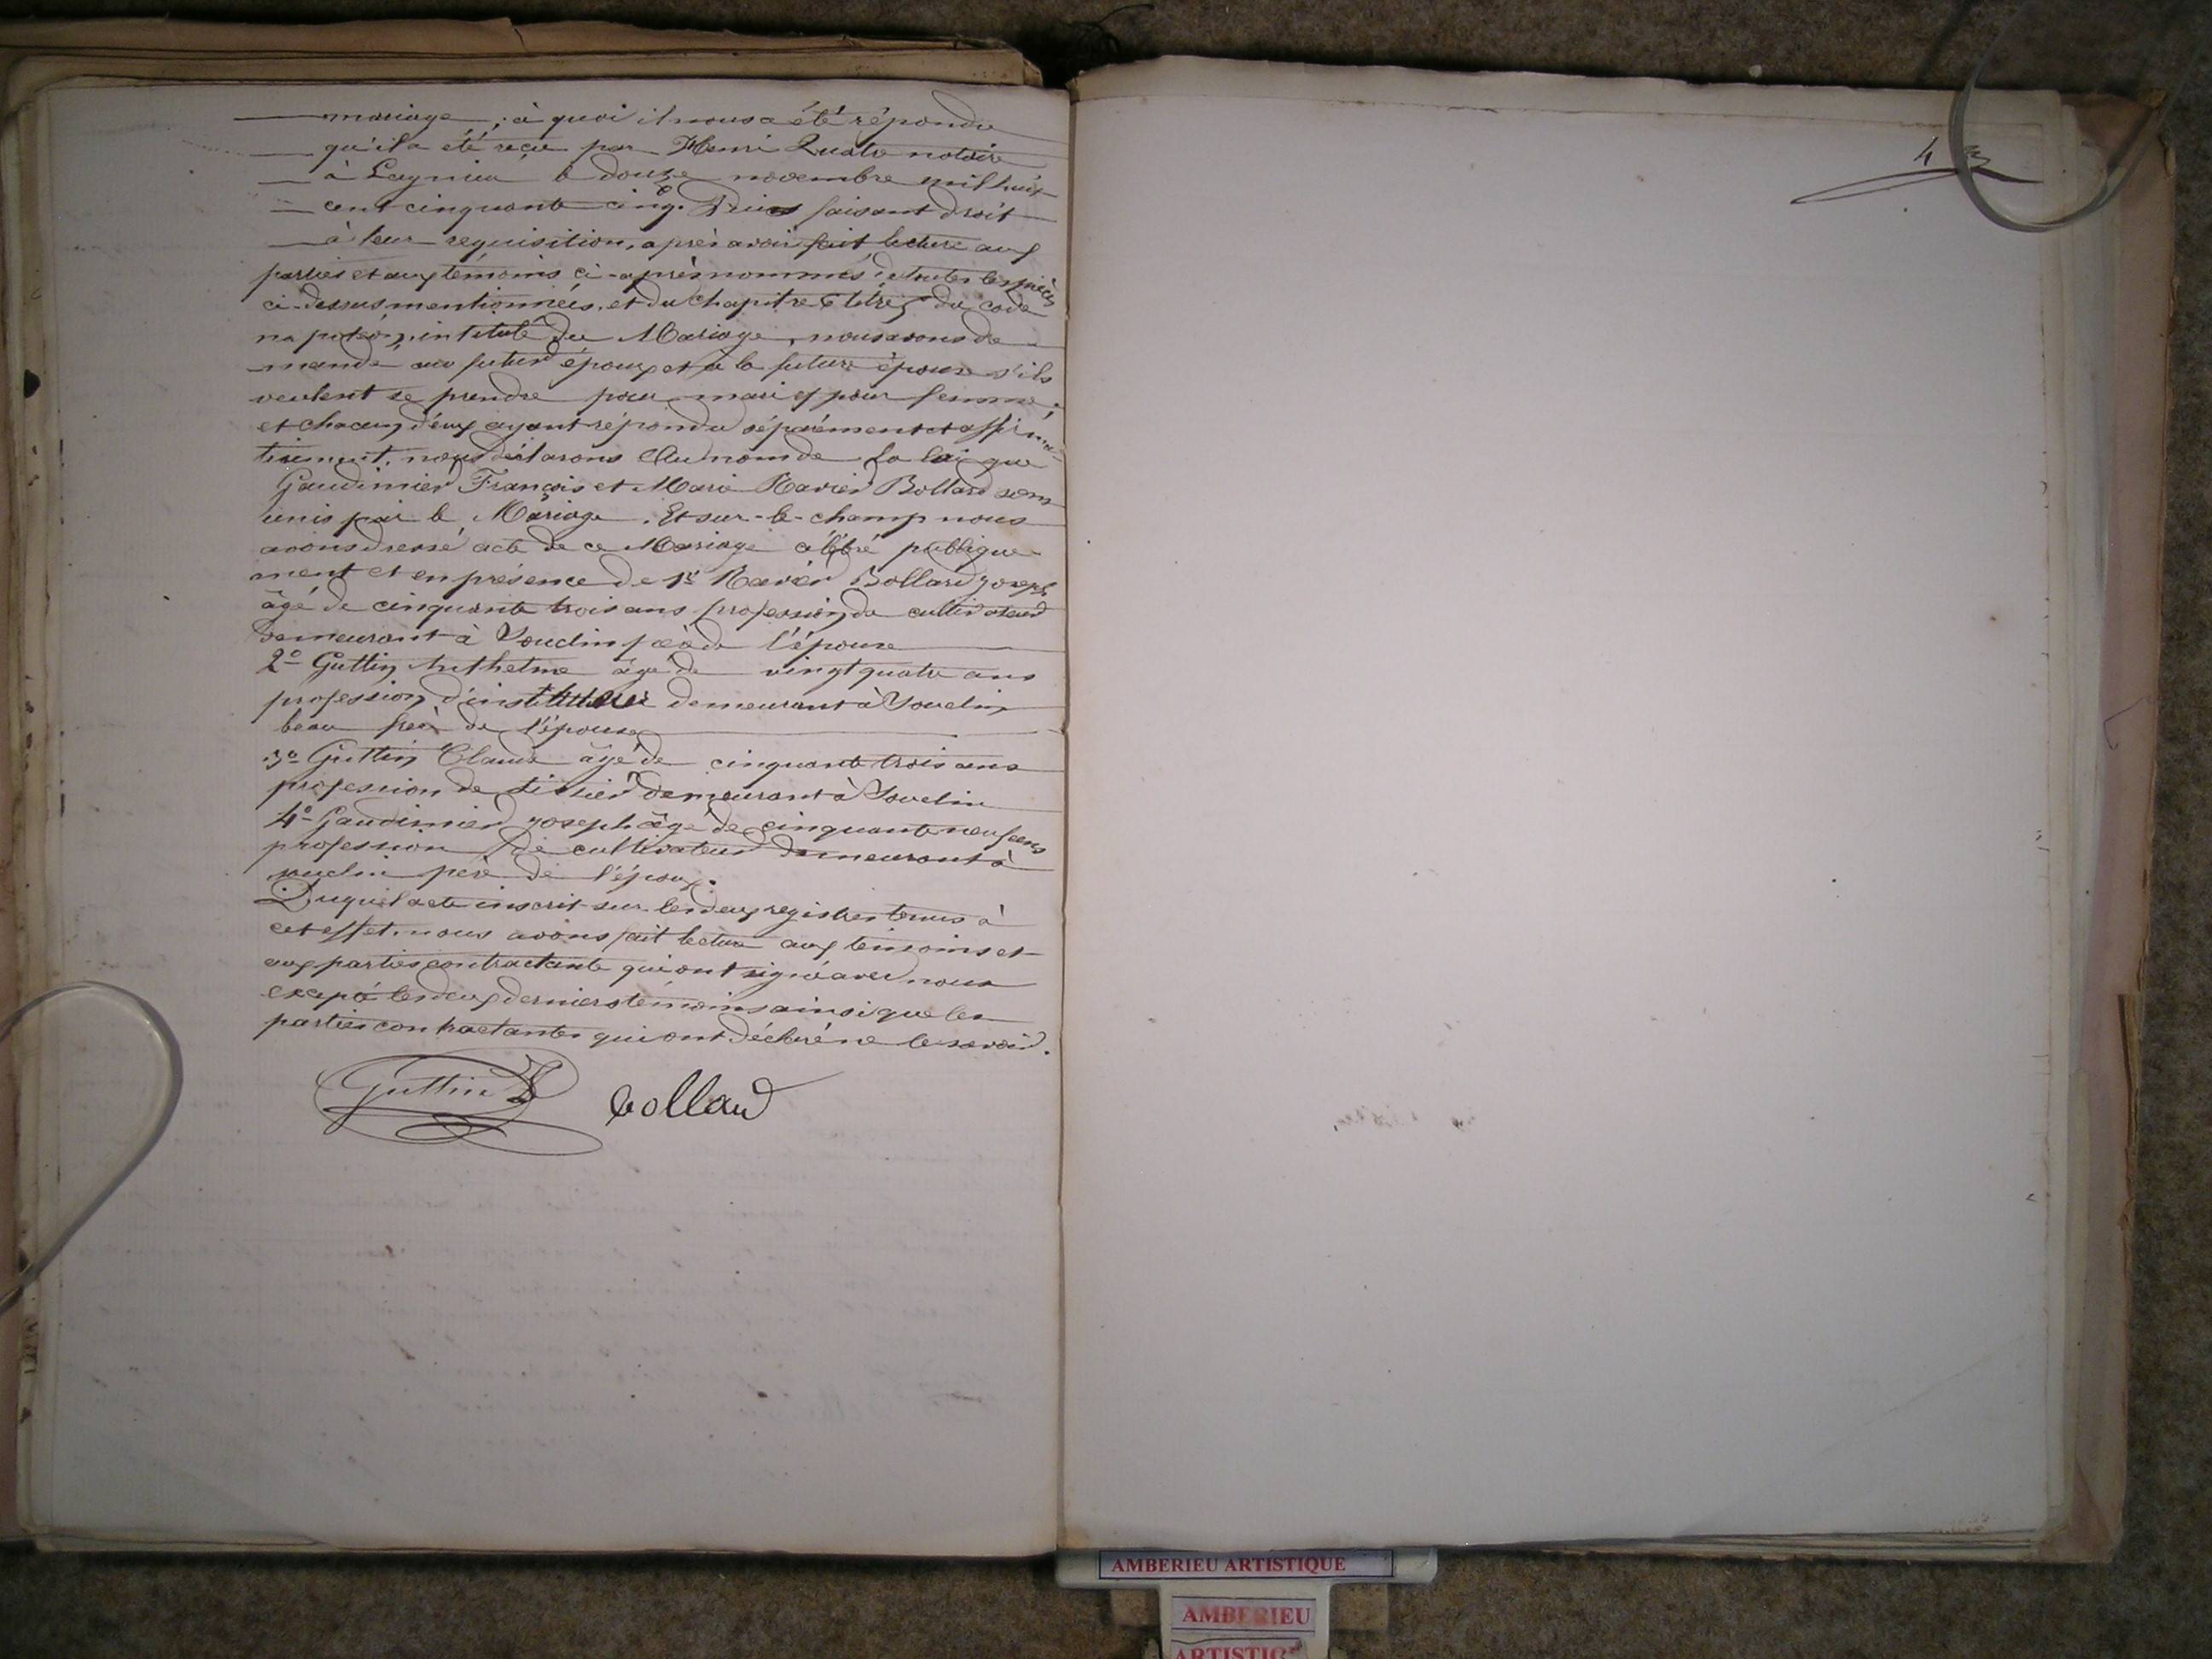 mariage, à quoi il nous a été répondu
qu'il a été reçu par Henri Quatre notaire
à Lagnieu le douze novembre mil huit
cent cinquante cinq. Puis faisant droit
à leur requisition, après avoir fait lecture aux
parties et aux témoins ci-après nommés, de toutes les pièces
ci-dessus mentionnées, et du chapitre 6 titre 5 du code
napoléon, intitulé du Mariage, nous avons de
mandé au futur époux et à la future épouse s'ils
veulent se prendre pour mari et pour femme.
et chacun d'eux ayant répondu séparément et affirma
tivement, nous déclarons Au nom de la loi que
Gaudinier François et Marie Ravier Bollard sont
unis par le Mariage. Et sur-le-champ nous
avons dressé acte de ce Mariage célébré publique
ment et en présence de 1º Ravier Bollard joseph
âgé de cinquante trois ans profession de cultivateur
demeurant à Souclin père de l'épouse
2º Guttin Anthelme âgé de vingt quatre ans
profession d'instituteur demeurant à Souclin
beau frère de l'épouse
3º Guttin Claude âgé de cinquante trois ans
profession de tissier demeurant à Souclin
4º Gaudinier joseph âgé de cinquante neuf ans
profession de cultivateur demeurant à
souclin père de l'époux.
Duquel acte inscrit sur les deux registres tenus à
cet effet, nous avons fait lecture aux témoins et
aux parties contractante qui ont signé avec nous
excepté les deux derniers témoins ainsi que les
parties contractantes qui ont déclaré ne le savoir.
Guttin bollard
43
AMBERIEU ARTISTIQUE
AMBERIEU
ARTISTIQ